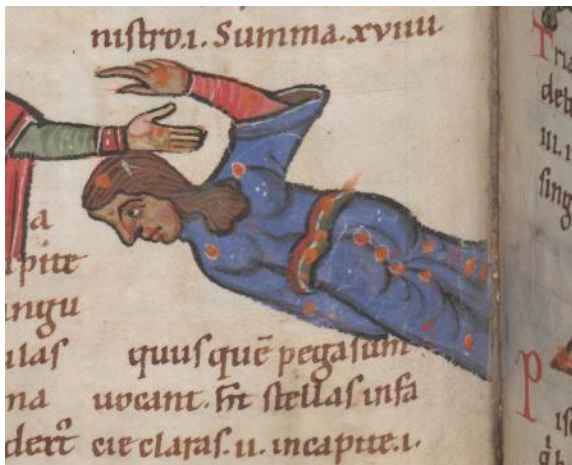 nistro .i. Summa .xviiii.
a
apite
angu
ulas
na
dext᷒
quus quē pegasum
uocant. hn̄t stellas in fa
cie claras .ii. in capite .i.
Tria
deb
iii. i
sing
P
isc